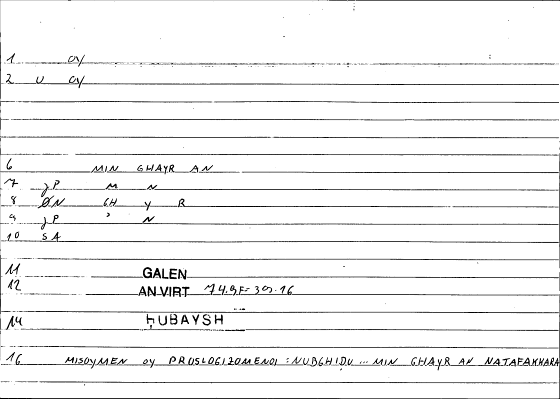 1 oy
2 U oy
6 MIN GHAYR AN
7 gP M N
8 ØN GH Y R
9 gP ' N
10 SA
11 GALEN
12 AN.VIRT 74.9F-30.16
14 ḥUBAYSH
16 MISOYMEN oy PROSLOGIZOMENOI : NUBGHIDU ... MIN GHAYR AN NATAFAKHARA